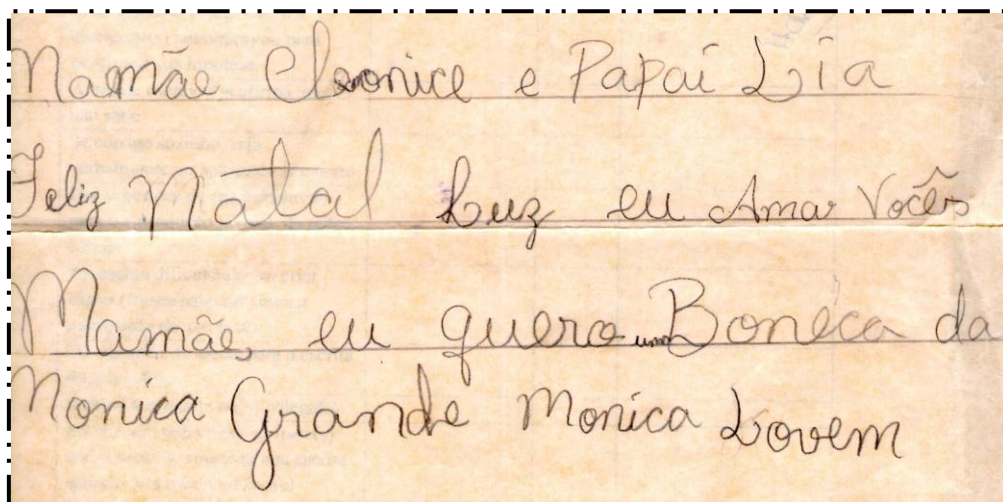 Mamãe Cleonice e Papai Lia
Feliz Natal Luz eu Ama Vocês
Mamãe, eu quero uma Boneca da
Monica Grande Monica Lovem